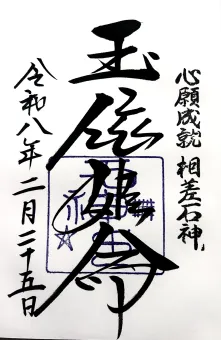 心願成就 相差石神
玉依姫命
令和八年二月二十五日